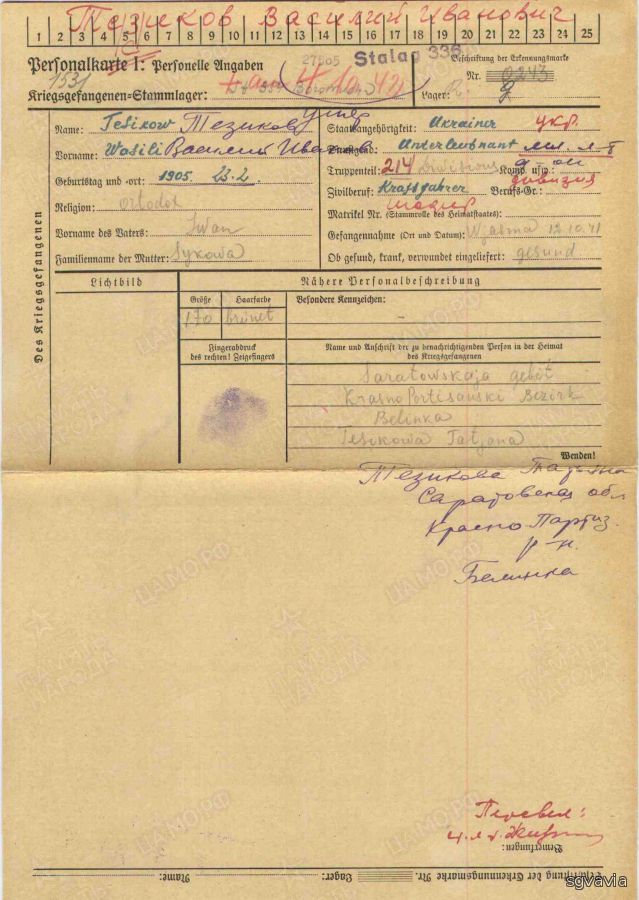 Тезиков Василий Иванович
1 2 3 4 5 6 7 8 9 10 11 12 13 14 15 16 17 18 19 20 21 22 23 24 25
Personalkarte I: Personelle Angaben
27505 Stalag 336
Beschriftung der Erkennungsmarke
Nr. 0243
Kriegsgefangenen=Stammlager:
Lager:
Des Kriegsgefangenen
Name: Tesikow Тезиков
Staatsangehörigkeit: Ukrainer укр.
Vorname: Wasili Василий Иванов
Dienstgrad: Unterleutnant мл. л-т
Geburtstag und -ort: 1905. 23.2
Truppenteil: 214 Division Komp. usw.: дивизия
Religion: Orthodox
Zivilberuf: Kraftfahrer Berufs-Gr.:
Matrikel Nr. (Stammrolle des Heimatstaates):
Vorname des Vaters: Iwan
Gefangennahme (Ort und Datum): Wjasma 12.10.41
Familienname der Mutter: Sykowa
Ob gesund, krank, verwundet eingeliefert: gesund
Lichtbild
Nähere Personalbeschreibung
Größe Haarfarbe
Besondere Kennzeichen:
170 brünet
–
Fingerabdruck
des rechten! Zeigefingers
Name und Anschrift der zu benachrichtigenden Person in der Heimat
des Kriegsgefangenen
Saratowskaja gebiet
Krasno Portisanski Bezirk
Belinka
Tesikowa Tatjana
Wenden!
Тезикова Татьяна
Саратовская обл
Красно Партиз.
р-н.
Белинка
Перевел:
Bemerkungen:
Beschriftung der Erkennungsmarke Nr.
Lager:
Name:
ЦАМО.РФ
ПАМЯТЬ НАРОДА
sgvavia